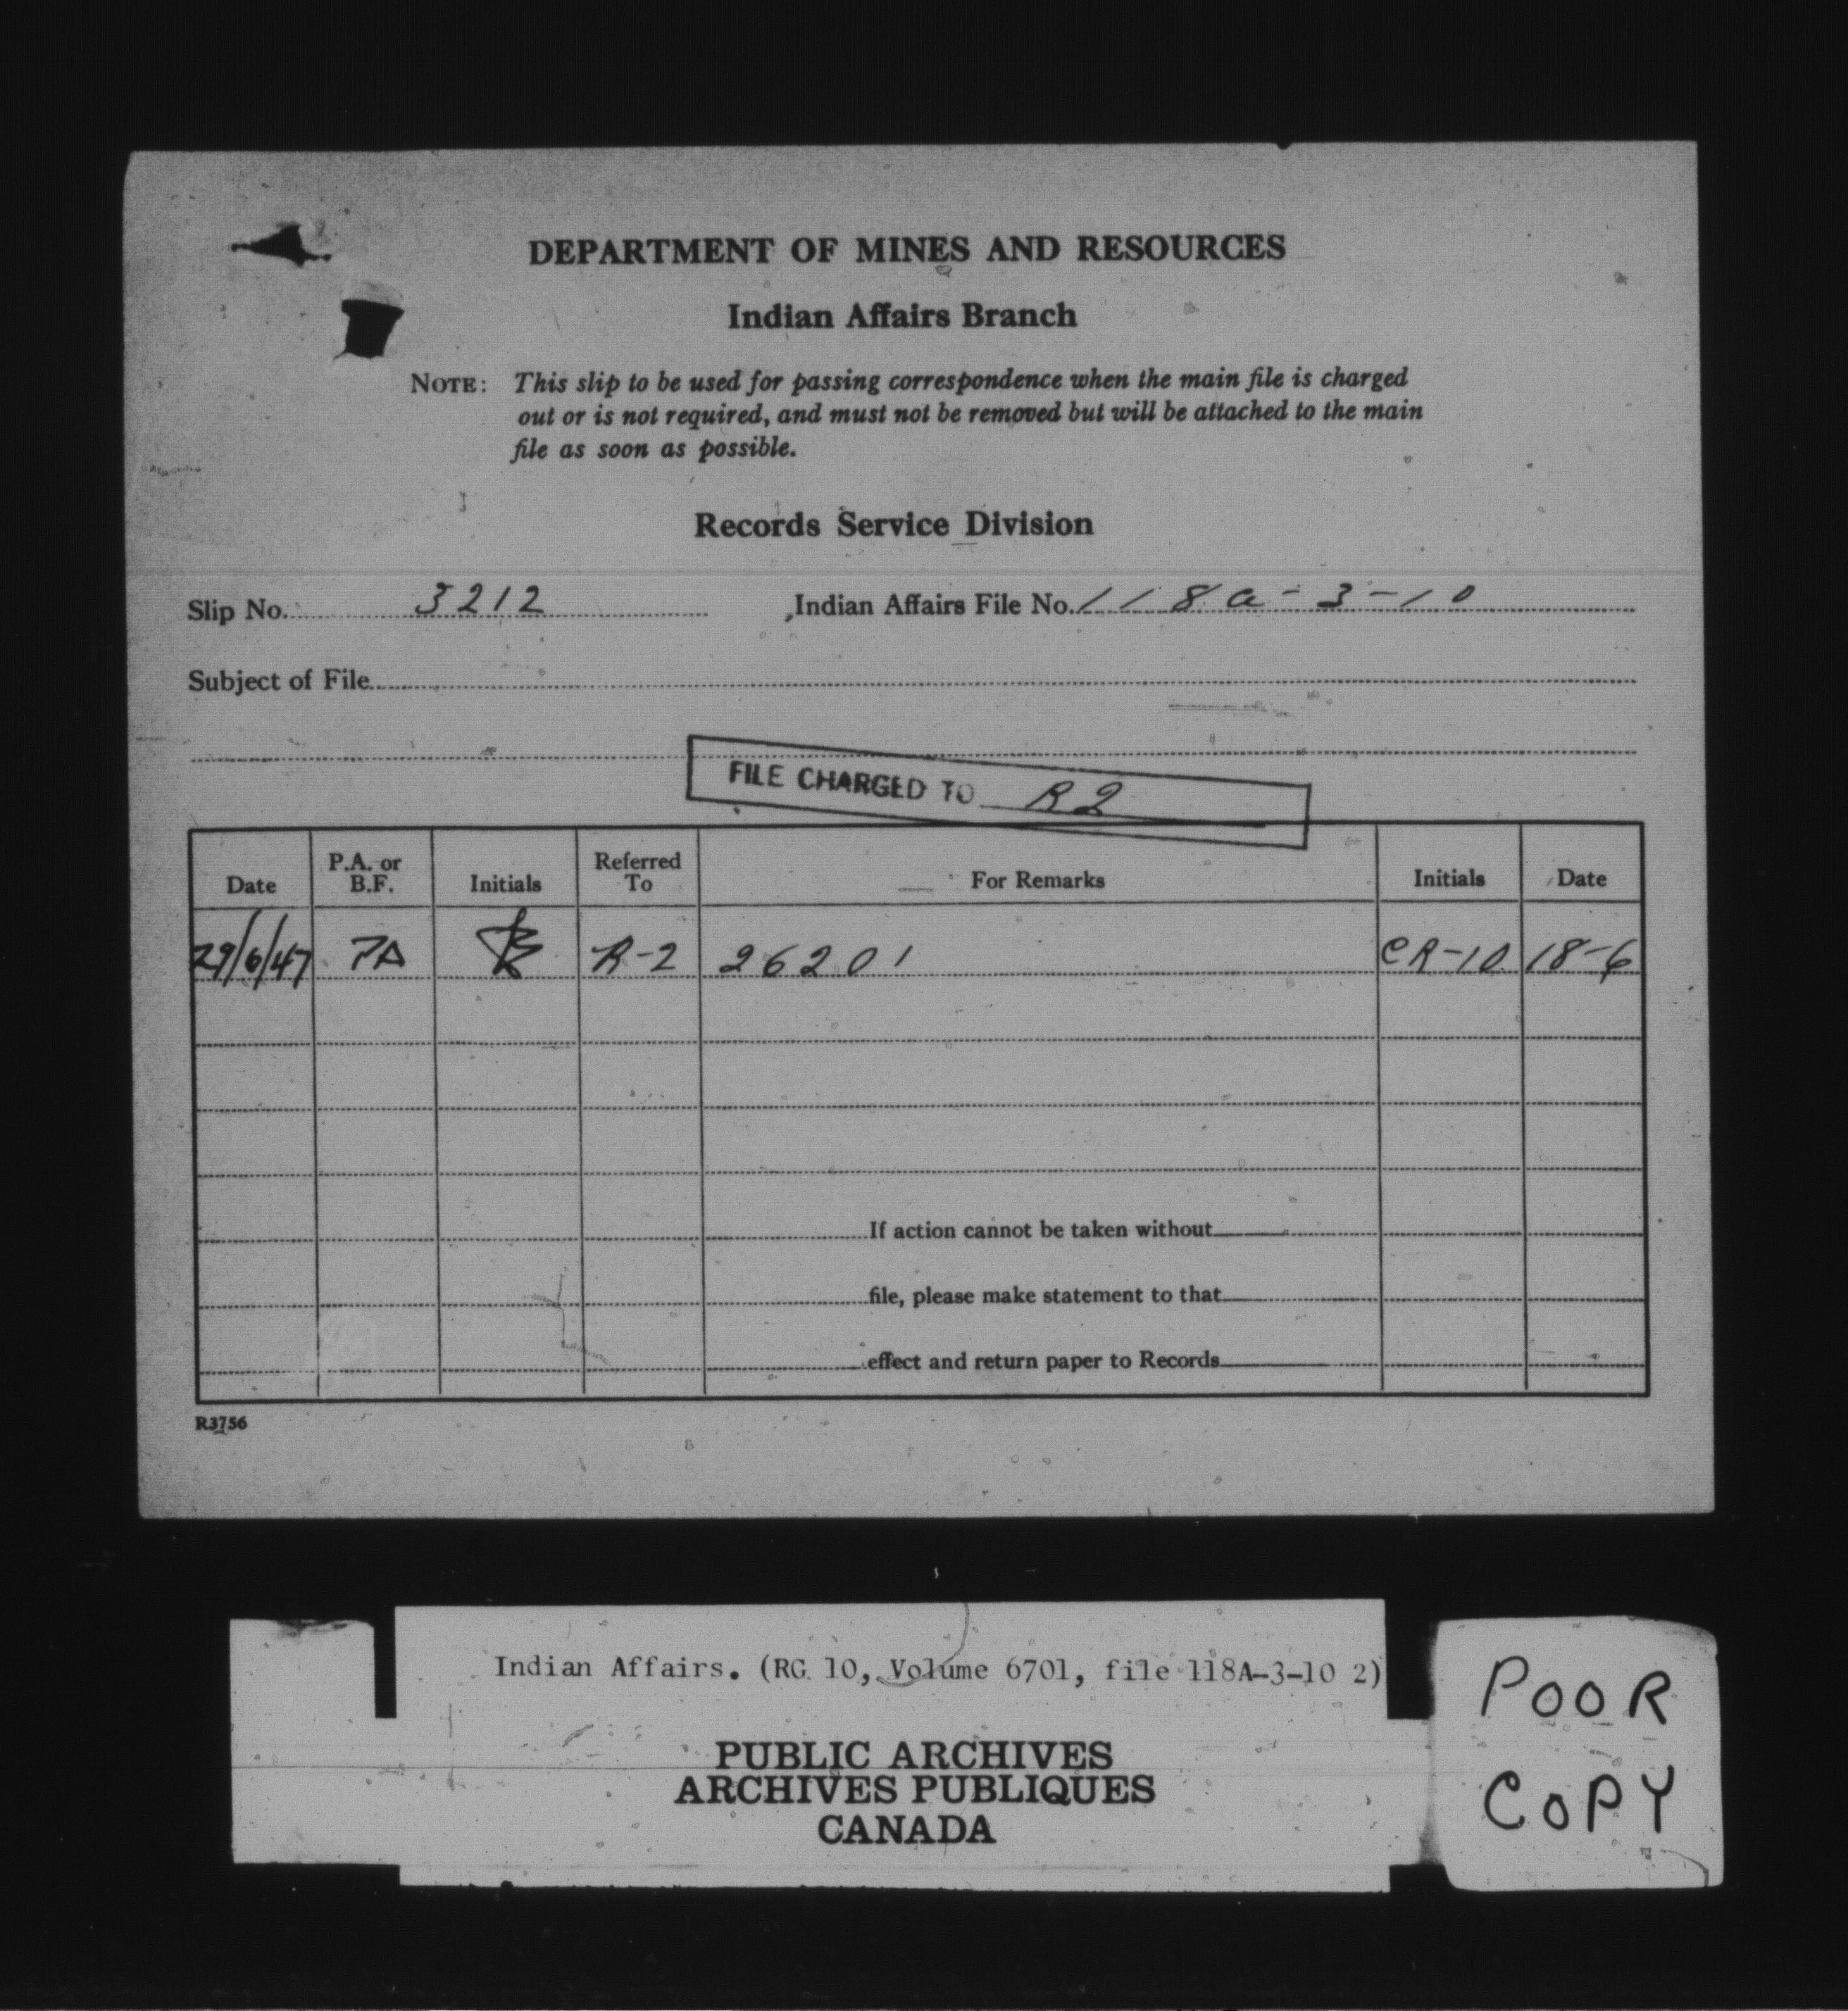 DEPARTMENT OF MINES AND RESOURCES
Indian Affairs Branch
NOTE: This slip to be used for passing correspondence when the main file is charged
out or is not required, and must not be removed but will be attached to the main
file as soon as possible.
Records Service Division
Slip No. 3212 Indian Affairs File No. 118a-3-10
Subject of File
FILE CHARGED TO R2
Date P.A. or B.F. Initials Referred To For Remarks Initials Date
29/6/47 PA R-2 26201 CR-10 18-6
If action cannot be taken without
file, please make statement to that
effect and return paper to Records
R3756
Indian Affairs. (RG 10, Volume 6701, file 118A-3-10 2)
PUBLIC ARCHIVES
ARCHIVES PUBLIQUES
CANADA
POOR
COPY